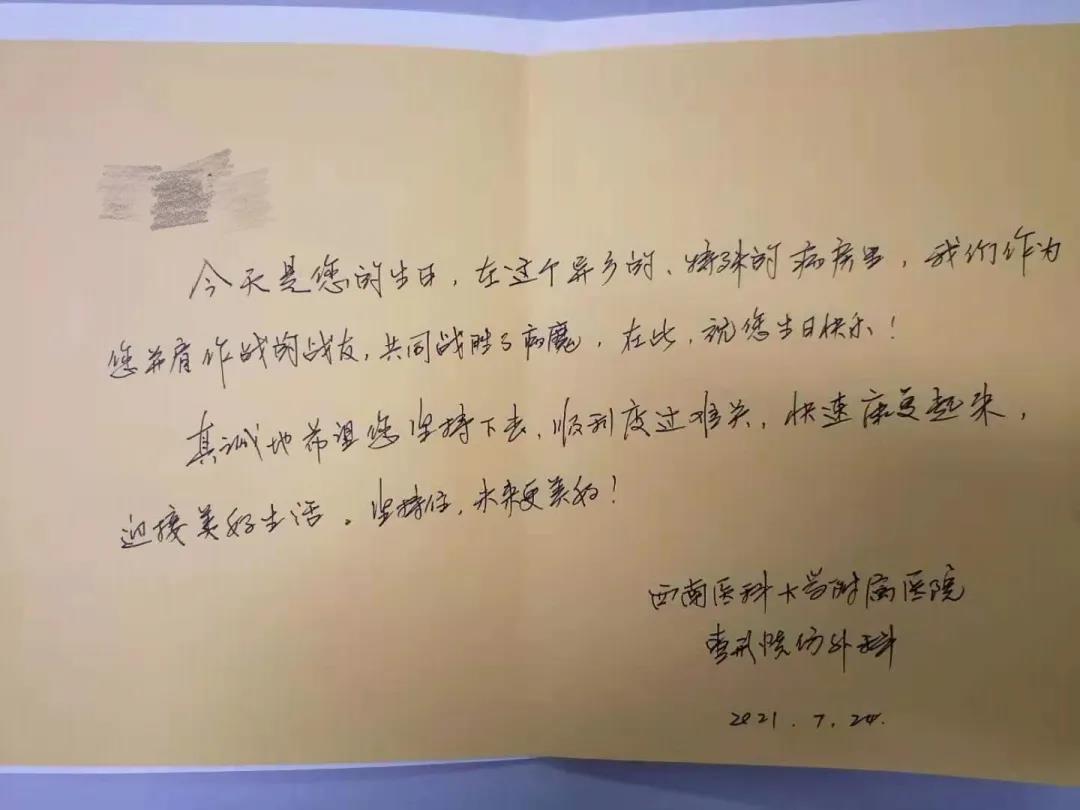 今天是您的生日，在这个异乡的、特殊的病房里，我们作为
您并肩作战的战友，共同战胜了病魔，在此，祝您生日快乐！
真诚地希望您坚持下去、顺利度过难关，快速康复起来，
迎接美好生活。坚持住，未来更美好！
西南医科大学附属医院
整形烧伤外科
2021.7.24.